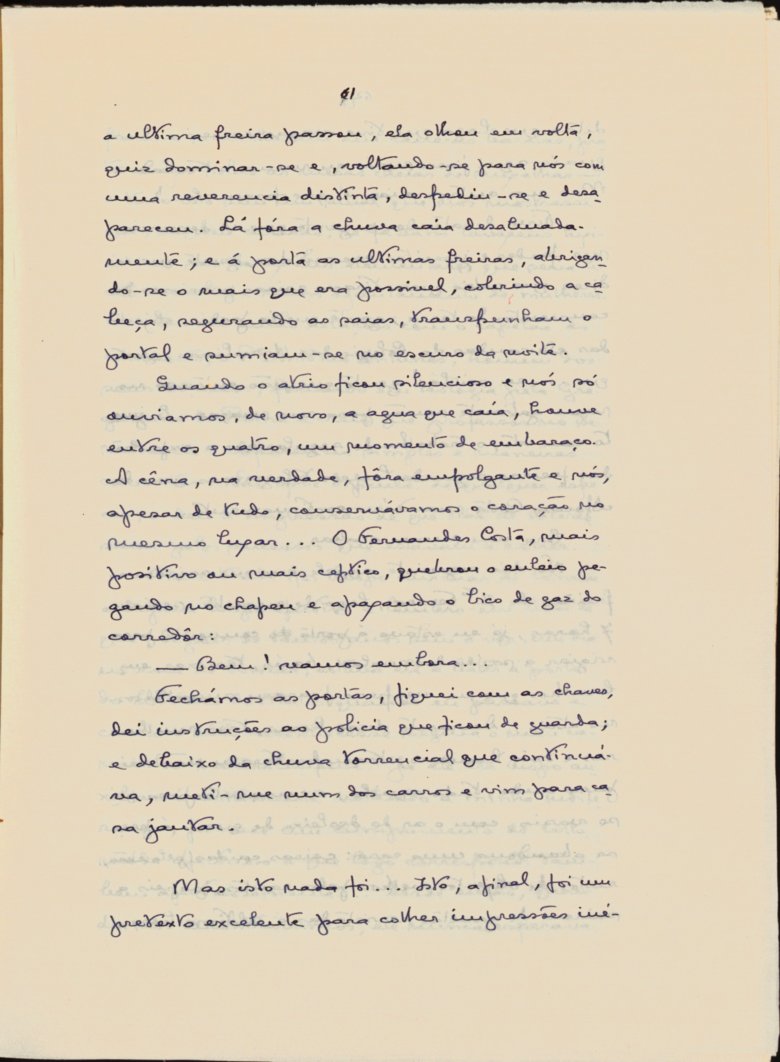 61
a ultima freira passou, ela olhou em volta,
quiz dominar-se e, voltando-se para nós com
uma reverencia distinta, despediu-se e desa-
pareceu. Lá fóra a chuva caia desalmada-
mente; e á porta as ultimas freiras, abrigan-
do-se o mais que era possivel, cobrindo a ca-
beça, segurando as saias, transpunham o
portal e sumiam-se no escuro da noite.
Quando o atrio ficou silencioso e nós só
ouviamos, de novo, a agua que caía, houve
entre os quatro, um momento de embaraço.
A cêna, na verdade, fôra empolgante e nós,
apezar de tudo, conservávamos o coração no
mesmo lugar... O Fernandes Costa, mais
positivo ou mais ceptico, quebrou o enleio pe-
gando no chapeu e apagando o bico de gaz do
corredôr:
— Bem! vamos embora...
Fechámos as portas, fiquei com as chaves,
dei instruções ao policia que ficou de guarda;
e debaixo da chuva torrencial que continuá-
va, meti-me num dos carros e vim para ca-
sa jantar.
Mas isto nada foi... Isto, afinal, foi um
pretexto excelente para colher impressões iné-